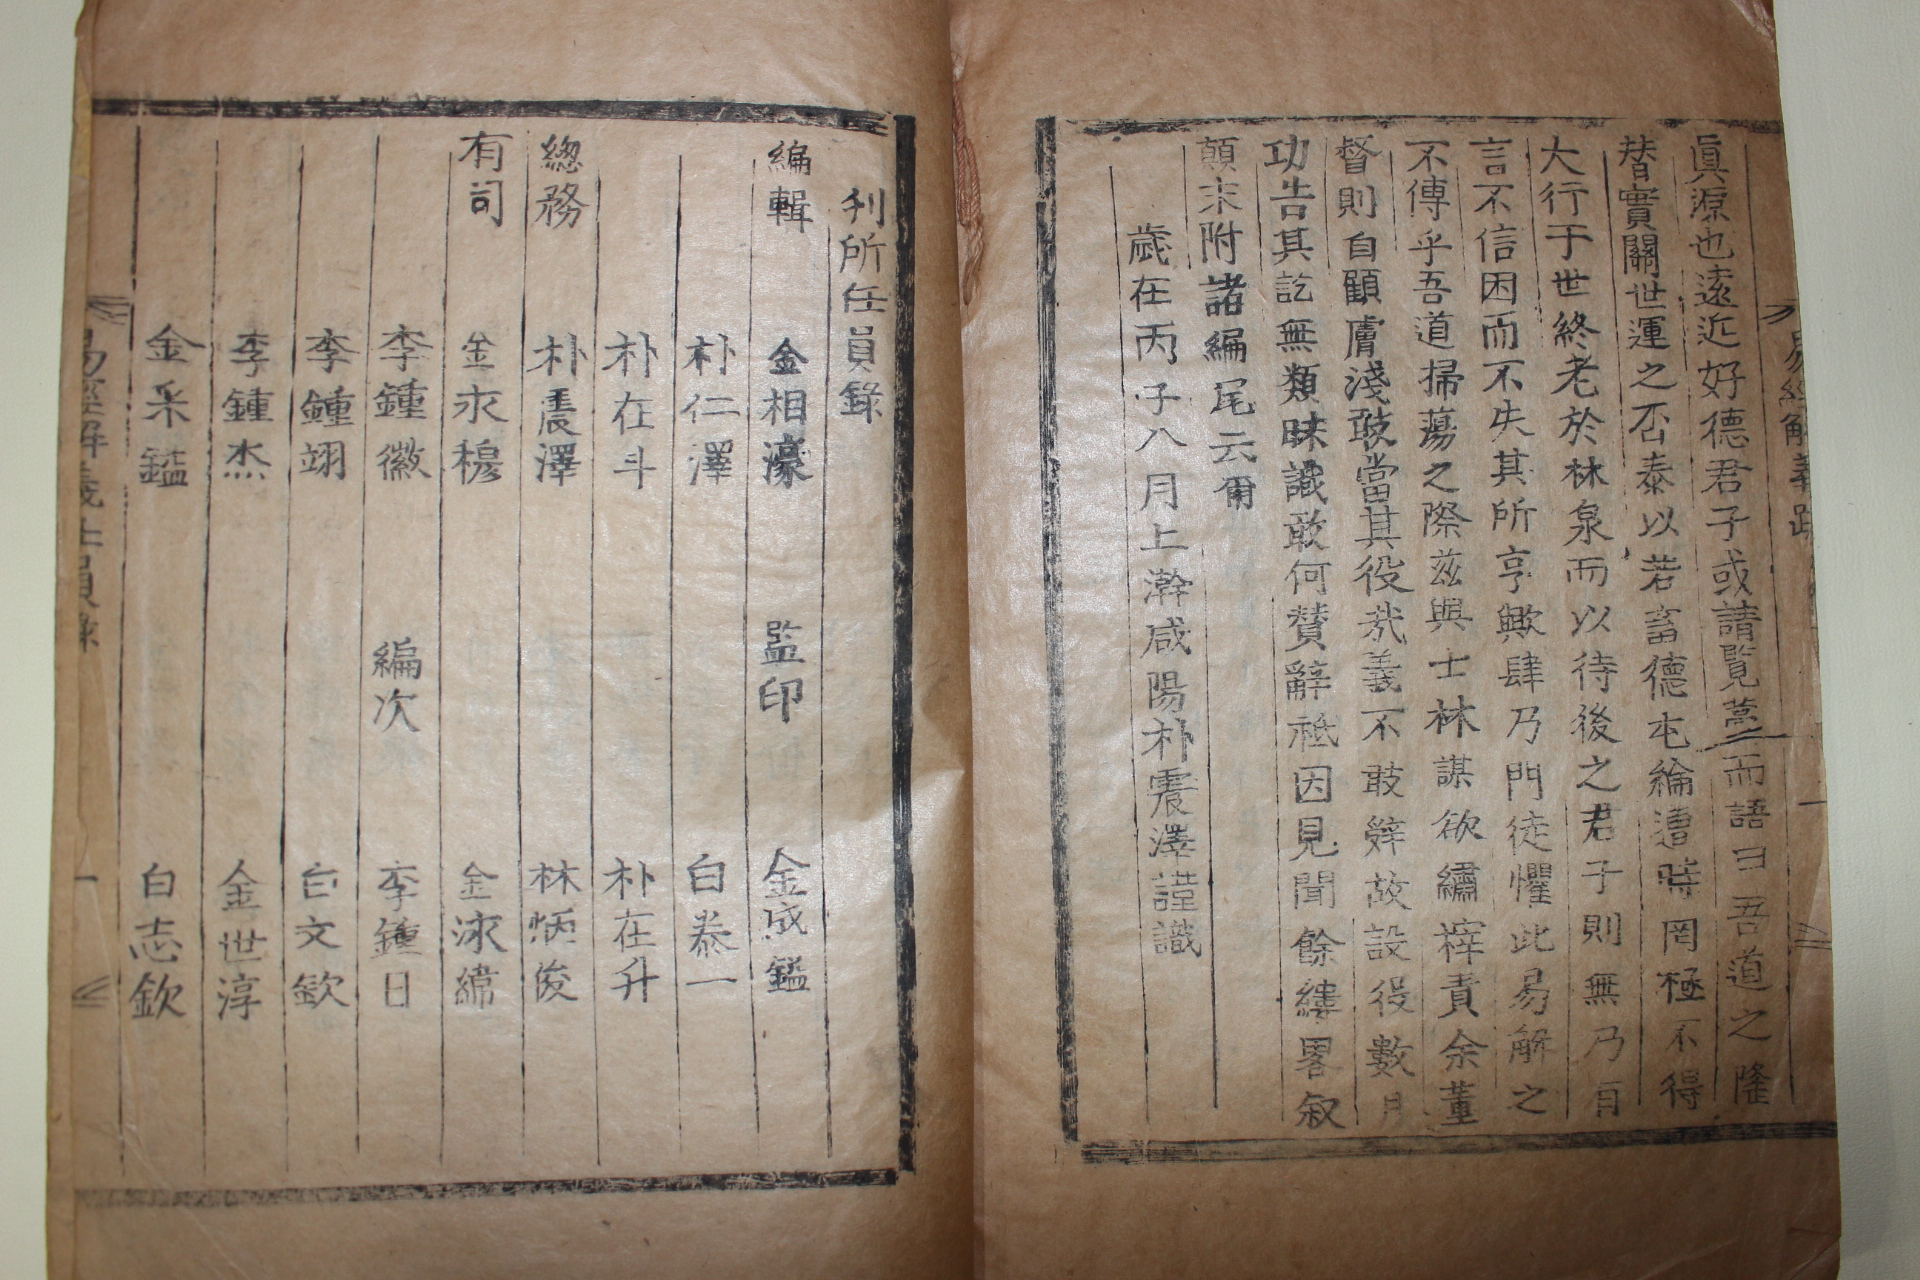 易經解義跋
眞源也遠近好德君子或請覧藁而語曰吾道之隆
替實關世運之否泰以若畜德屯綸遭時罔極不得
大行于世終老於林泉而以待後之君子則無乃有
言不信困而不失其所亨歟肆乃門徒懼此易解之
不傳乎吾道掃蕩之際玆與士林謀欲繡梓責余董
督則自顧膚淺敢當其役㦲義不敢辞故設役數月
功告其訖無類昧識敢何贊辭祗因見聞餘縷畧叙
顛末附諸編尾云爾
歲在丙子八月上澣咸陽朴震澤謹識
刋所任員錄
編輯 金相濠 監印 金成鎰
朴仁澤 白泰一
朴在斗 朴在升
總務 朴震澤 林炳俊
有司 金永穆 金泳緯
李鍾徽 編次 李鍾日
李鍾翊 白文欽
李鍾杰 金世淳
金釆鎰 白志欽
易經解義任員錄 一